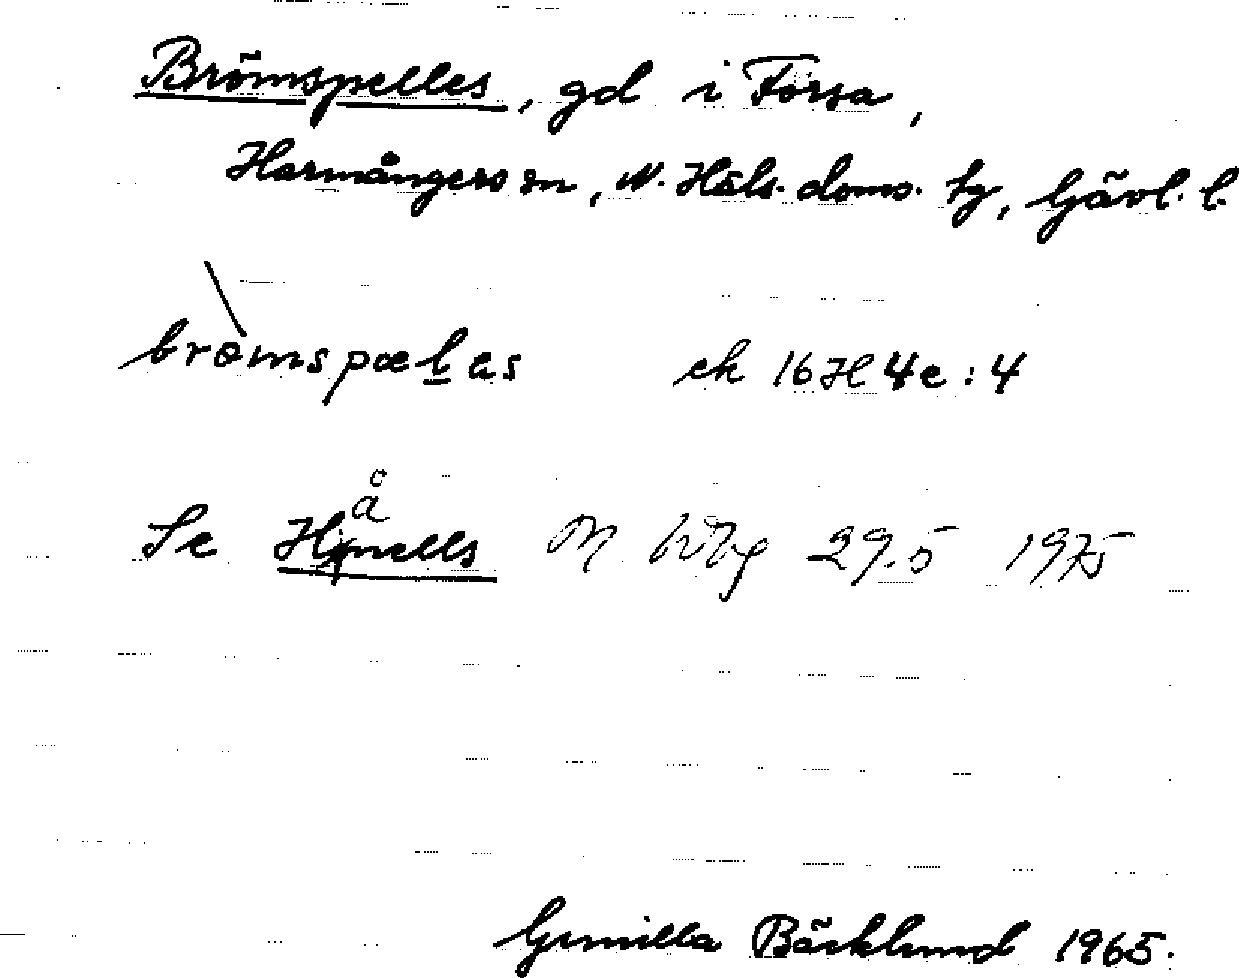 Brömspelles, gd i Forsa,
Harmångers sn, N. Häls. doms. tg, Gävl. l.
bròmspælas ek 16H 4e : 4
Se Hånells 29.5 1975
Gunilla Bäcklund 1965.